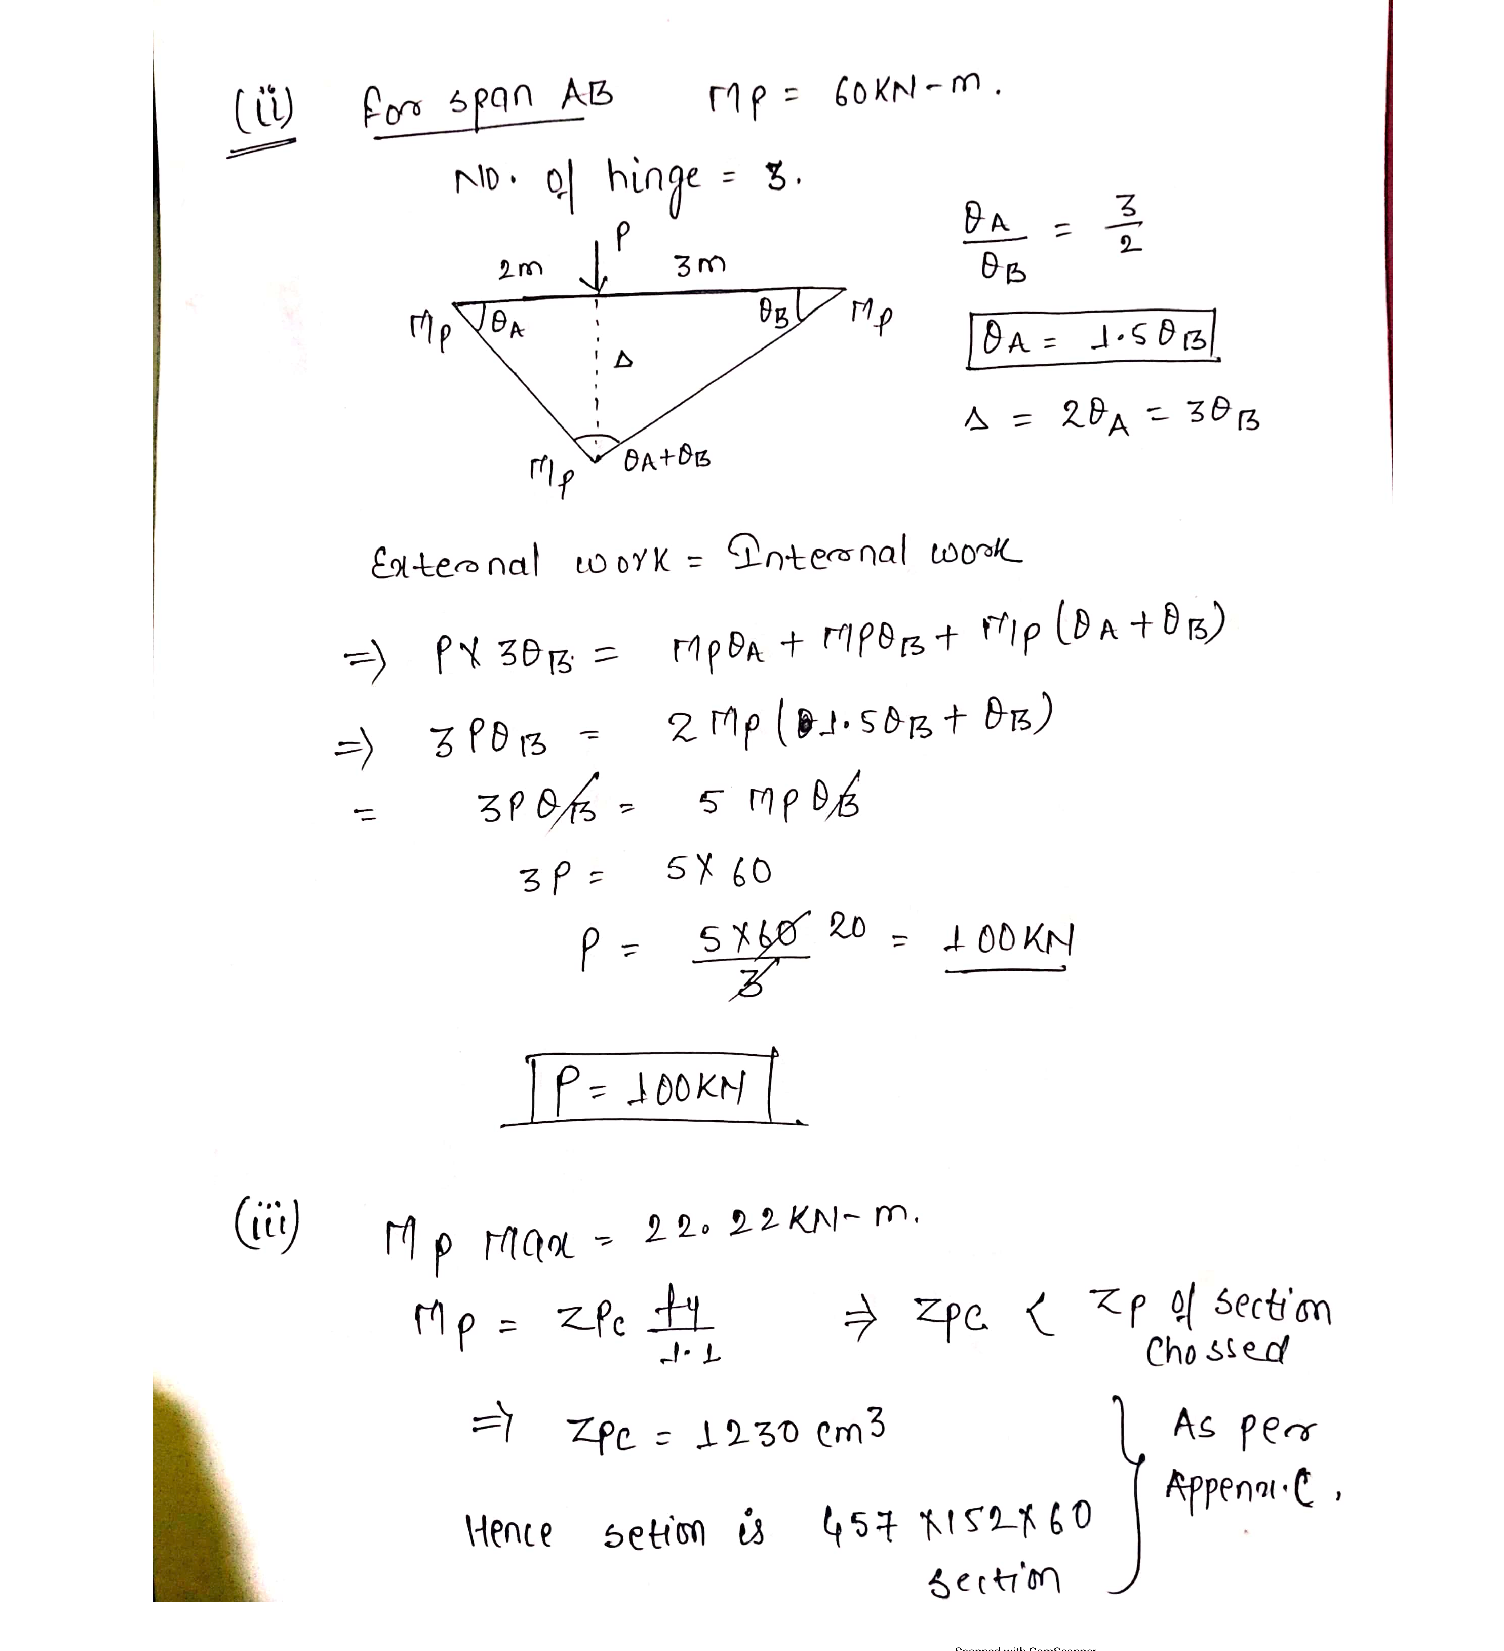 (ii) for span AB Mp = 60KN-m.
No. of hinge = 3.
θA/θB = 3/2
P
2m 3m
Mp θA θB Mp
θA = 1.5θB
Δ
Δ = 2θA = 3θB
Mp θA+θB
External work = Internal work
⇒ P×3θB = MpθA + MpθB + Mp(θA+θB)
⇒ 3PθB = 2Mp(1.5θB + θB)
= 3PθB = 5MpθB
3P = 5×60
P = 5×60/3 20 = 100KN
P = 100KN
(iii) Mp Max = 22.22KN-m.
Mp = Zpc fy/1.1 ⇒ Zpc < Zp of section
Chossed
⇒ Zpc = 1230 cm3 } As per
Appenx.C,
Hence setion is 457×152×60
section